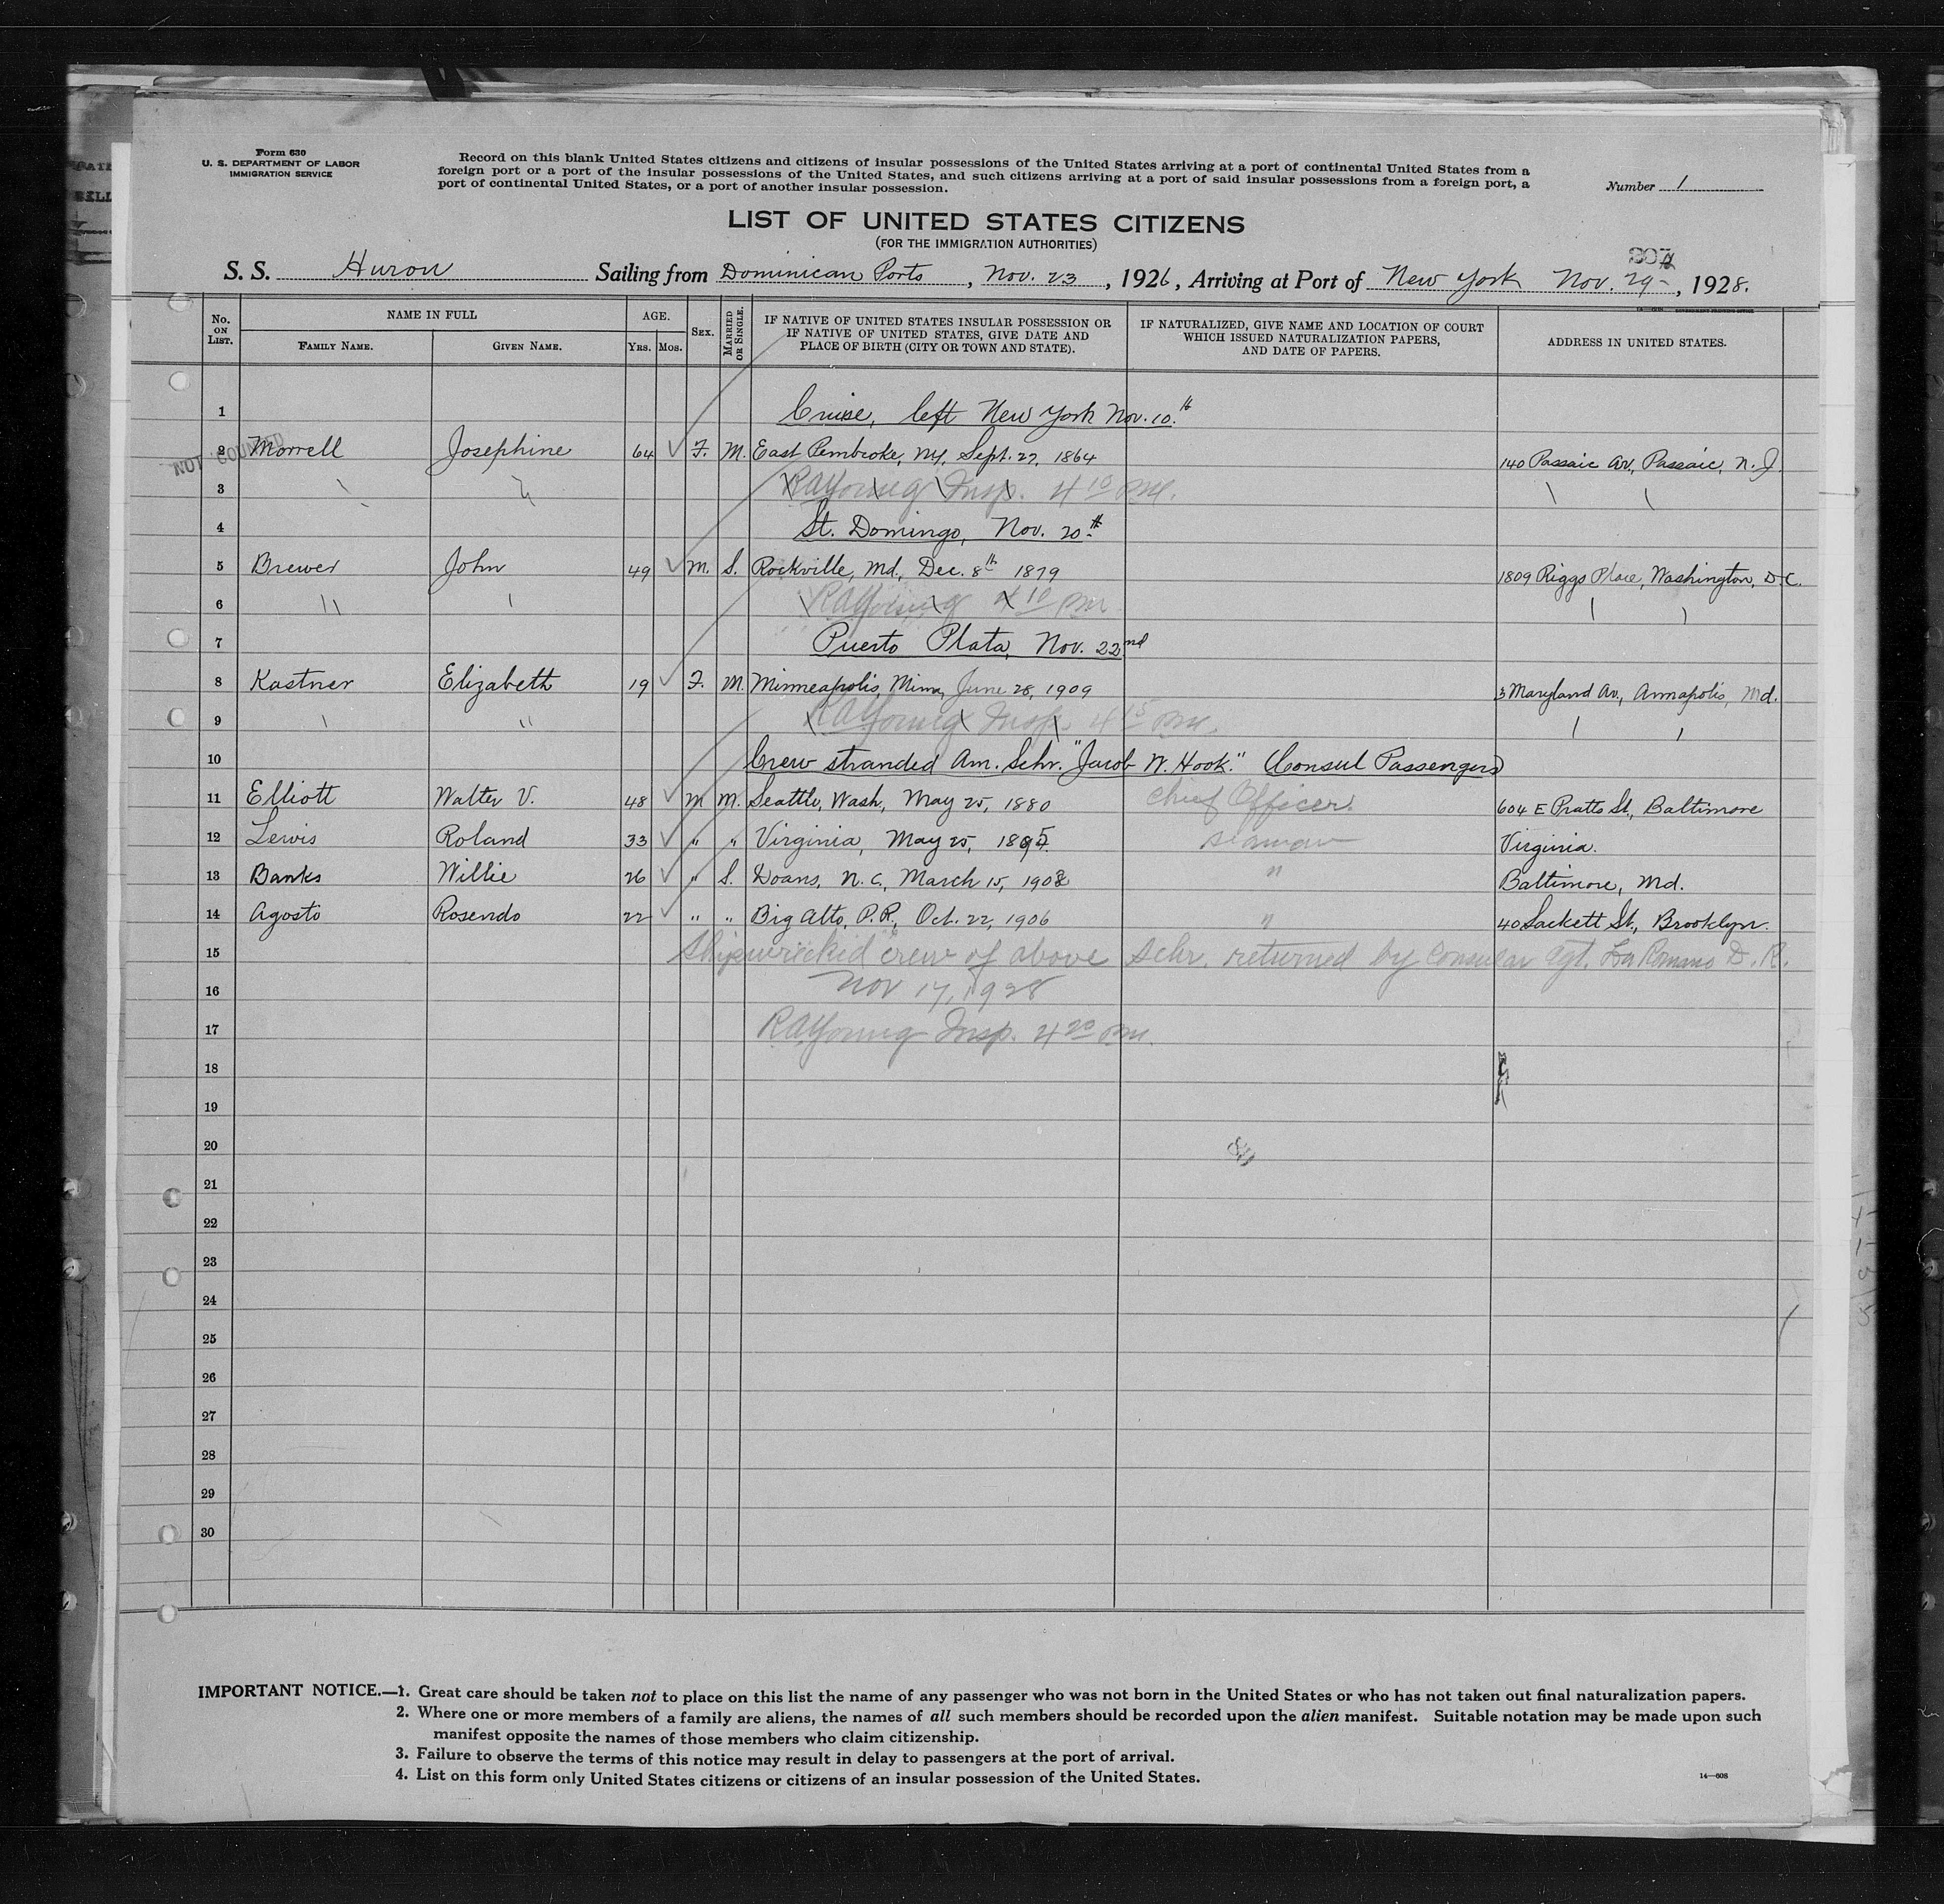 Form 630
U. S. DEPARTMENT OF LABOR
IMMIGRATION SERVICE
Record on this blank United States citizens and citizens of insular possessions of the United States arriving at a port of continental United States from a
foreign port or a port of the insular possessions of the United States, and such citizens arriving at a port of said insular possessions from a foreign port, a
port of continental United States, or a port of another insular possession.
Number 1
LIST OF UNITED STATES CITIZENS
(FOR THE IMMIGRATION AUTHORITIES)
S. S. Huron Sailing from Dominican Ports, Nov. 23, 1926, Arriving at Port of New York Nov. 29-, 1928.
No. ON LIST. NAME IN FULL FAMILY NAME. GIVEN NAME. AGE. YRS. MOS. SEX. MARRIED OR SINGLE. IF NATIVE OF UNITED STATES INSULAR POSSESSION OR IF NATIVE OF UNITED STATES, GIVE DATE AND PLACE OF BIRTH (CITY OR TOWN AND STATE). IF NATURALIZED, GIVE NAME AND LOCATION OF COURT WHICH ISSUED NATURALIZATION PAPERS, AND DATE OF PAPERS. ADDRESS IN UNITED STATES.
1 Cruise, left New York Nov. 10.th
NOT COUNTED
2 Morrell Josephine 64 F. M. East Pembroke, NY, Sept. 27, 1864 140 Passaic Av., Passaic, N. J.
3 RAYoung Insp. 4 10 PM.
4 St. Domingo, Nov. 20th
5 Brewer John 49 M. S. Rockville, Md., Dec. 8th 1879 1809 Riggs Place, Washington, D.C.
6 RAYoung 4 10 PM
7 Puerto Plata, Nov. 22nd
8 Kastner Elizabeth 19 F. M. Minneapolis, Minn, June 28, 1909 3 Maryland Av., Annapolis, Md.
9 RAYoung Insp. 4 15 PM.
10 Crew stranded Am. Schr. "Jacob W. Hook." (Consul Passengers)
11 Elliott Walter V. 48 M M. Seattle, Wash, May 25, 1880 Chief Officer. 604 E Pratts St., Baltimore
12 Lewis Roland 33 " " Virginia, May 25, 1895. seaman Virginia.
13 Banks Willie 26 " S. Doans, N. C., March 15, 1902 " Baltimore, Md.
14 Agosto Rosendo 22 " " Big Alto, P.R., Oct. 22, 1906 " 40 Sackett St., Brooklyn.
15 Shipwrecked crew of above schr. returned by Consular Agt. La Romano D. R.
16 Nov 17, 1928
17 RAYoung Insp. 4 20 PM.
18
19
20
21
22
23
24
25
26
27
28
29
30
IMPORTANT NOTICE.—1. Great care should be taken not to place on this list the name of any passenger who was not born in the United States or who has not taken out final naturalization papers.
2. Where one or more members of a family are aliens, the names of all such members should be recorded upon the alien manifest. Suitable notation may be made upon such
manifest opposite the names of those members who claim citizenship.
3. Failure to observe the terms of this notice may result in delay to passengers at the port of arrival.
4. List on this form only United States citizens or citizens of an insular possession of the United States.
14—608